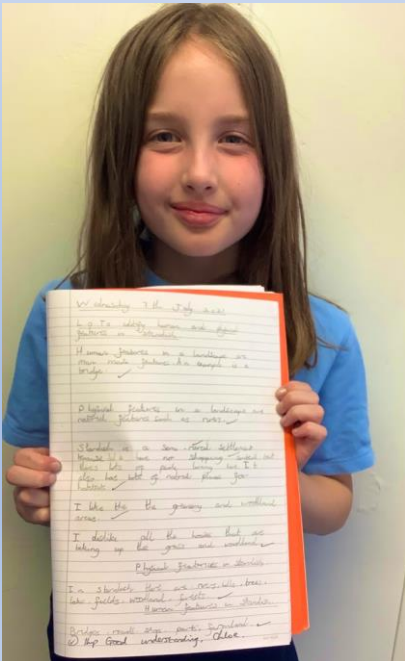 Wednesday 7th July 2021
L.O To identify human and physical
features in Standish
Human features in a landscape are
man made features. An example is a
bridge.
Physical features in a landscape are
natural features such as rivers.
Standish is a semi rural settlement
because it
also has lots of natural places for
I like the the greenery and woodland
areas.
I dislike all the houses that are
taking up the grass and woodland.
Physical features in Standish
In Standish there are rivers, hills, trees,
lake, fields, woodland, forests
Human features in Standish
Bridges, roads, shops, parks, farmland.
Good understanding, Chloe.